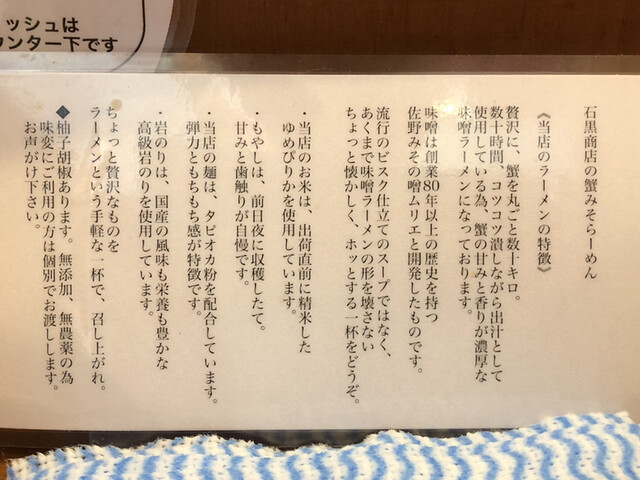 ッシュは
ウンター下です
石黒商店の蟹みそらーめん
《当店のラーメンの特徴》
贅沢に、蟹を丸ごと数十キロ。
数十時間、コツコツ潰しながら出汁として
使用している為、蟹の甘みと香りが濃厚な
味噌ラーメンになっております。
味噌は創業80年以上の歴史を持つ
佐野みその噌ムリエと開発したものです。
流行のビスク仕立てのスープではなく、
あくまで味噌ラーメンの形を壊さない
ちょっと懐かしく、ホッとする一杯をどうぞ。
・当店のお米は、出荷直前に精米した
ゆめぴりかを使用しています。
・もやしは、前日夜に収穫したて。
甘みと歯触りが自慢です。
・当店の麺は、タピオカ粉を配合しています。
弾力ともちもち感が特徴です。
・岩のりは、国産の風味も栄養も豊かな
高級岩のりを使用しています。
ちょっと贅沢なものを
ラーメンという手軽な一杯で、召し上がれ。
◆柚子胡椒あります。無添加、無農薬の為
味変にご利用の方は個別でお渡しします。
お声がけ下さい。